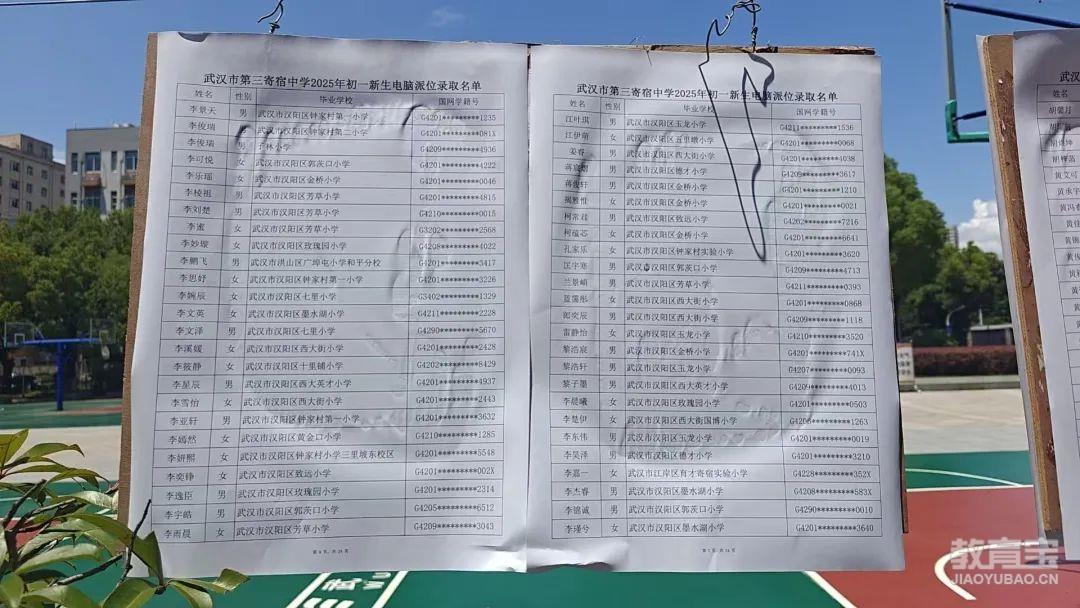 武汉市第三寄宿中学2025年初一新生电脑派位录取名单
姓名 性别 毕业学校 国网学籍号
李景天 男 武汉市汉阳区钟家村第一小学 G4201*********1235
李俊瑞 男 武汉市汉阳区钟家村第二小学 G4201*********081X
李俊瑞 男 子林小学 G4209*********4936
李可悦 女 武汉市汉阳区郭茨口小学 G4201*********4222
李乐瑶 女 武汉市汉阳区金桥小学 G4201*********0046
李棱祖 男 武汉市汉阳区芳草小学 G4201*********4815
李刘楚 男 武汉市汉阳区芳草小学 G4210*********0015
李蜜 女 武汉市汉阳区芳草小学 G3202*********2568
李妙璇 女 武汉市汉阳区玫瑰园小学 G4208*********4022
李鹏飞 男 武汉市洪山区广埠屯小学和平分校 G4201*********3417
李思妤 女 武汉市汉阳区钟家村第一小学 G4201*********3226
李婉辰 女 武汉市汉阳区七里小学 G3402*********1329
李文英 女 武汉市汉阳区墨水湖小学 G4211*********2228
李文泽 男 武汉市汉阳区七里小学 G4290*********5670
李溪媛 女 武汉市汉阳区西大街小学 G4201*********2428
李筱静 女 武汉市汉阳区十里铺小学 G4202*********8429
李星辰 男 武汉市汉阳区西大英才小学 G4201*********4937
李雪怡 女 武汉市汉阳区西大街小学 G4201*********2443
李亚轩 男 武汉市汉阳区钟家村第一小学 G4201*********3632
李嫣然 女 武汉市汉阳区黄金口小学 G4210*********1285
李妍熙 女 武汉市汉阳区钟家村小学三里坡东校区 G4201*********5548
李奕铮 女 武汉市汉阳区致远小学 G4201*********002X
李逸臣 男 武汉市汉阳区玫瑰园小学 G4201*********2314
李宇皓 男 武汉市汉阳区郭茨口小学 G4205*********6512
李雨晨 女 武汉市汉阳区芳草小学 G4209*********3043
第 6 页，共 24 页
武汉市第三寄宿中学2025年初一新生电脑派位录取名单
姓名 性别 毕业学校 国网学籍号
江叶琪 男 武汉市汉阳区玉龙小学 G4211*********1536
江伊萌 女 武汉市汉阳区五里墩小学 G4201*********0068
姜睿 男 武汉市汉阳区西大街小学 G4201*********4038
蒋宸 男 武汉市汉阳区德才小学 G4209*********3617
蒋俊轩 男 武汉市汉阳区金桥小学 G4201*********1210
揭雅惟 女 武汉市汉阳区金桥小学 G4201*********0021
柯常君 男 武汉市汉阳区致远小学 G4202*********7216
柯蕴芯 女 武汉市汉阳区金桥小学 G4201*********6641
孔家乐 女 武汉市汉阳区钟家村实验小学 G4201*********3620
匡宇寒 男 武汉市汉阳区郭茨口小学 G4209*********4713
兰景嵋 男 武汉市汉阳区芳草小学 G4211*********0393
蓝霈彤 女 武汉市汉阳区西大街小学 G4201*********0868
郎奕辰 男 武汉市汉阳区西大街小学 G4209*********1118
雷静怡 女 武汉市汉阳区玉龙小学 G4210*********3520
黎浩宸 男 武汉市汉阳区金桥小学 G4201*********741X
黎浩轩 男 武汉市汉阳区玉龙小学 G4207*********0093
黎子墨 男 武汉市汉阳区西大英才小学 G4209*********4013
李晨曦 女 武汉市汉阳区玫瑰园小学 G4201*********0503
李楚伊 女 武汉市汉阳区西大街国博小学 G4206*********1263
李东伟 男 武汉市汉阳区玉龙小学 G4201*********0019
李昊泽 男 武汉市汉阳区德才小学 G4201*********3210
李嘉一 女 武汉市江岸区育才寄宿实验小学 G4228*********352X
李杰睿 男 武汉市汉阳区墨水湖小学 G4208*********583X
李锦诚 男 武汉市汉阳区郭茨口小学 G4290*********0010
李瑾兮 女 武汉市汉阳区墨水湖小学 G4201*********3640
第 7 页，共 24 页
姓名
胡馨月
黄艾可
黄承宇
教育宝
JIAOYUBAO.CN